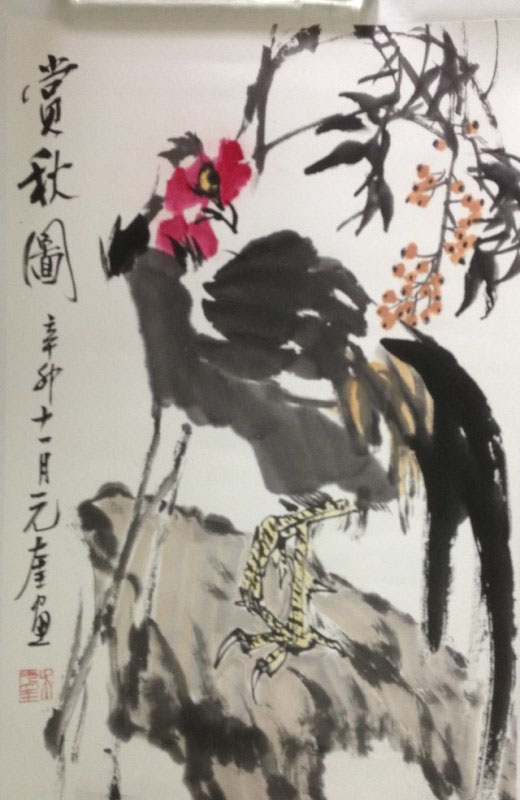 賞秋圖
辛卯十一月元奎畫